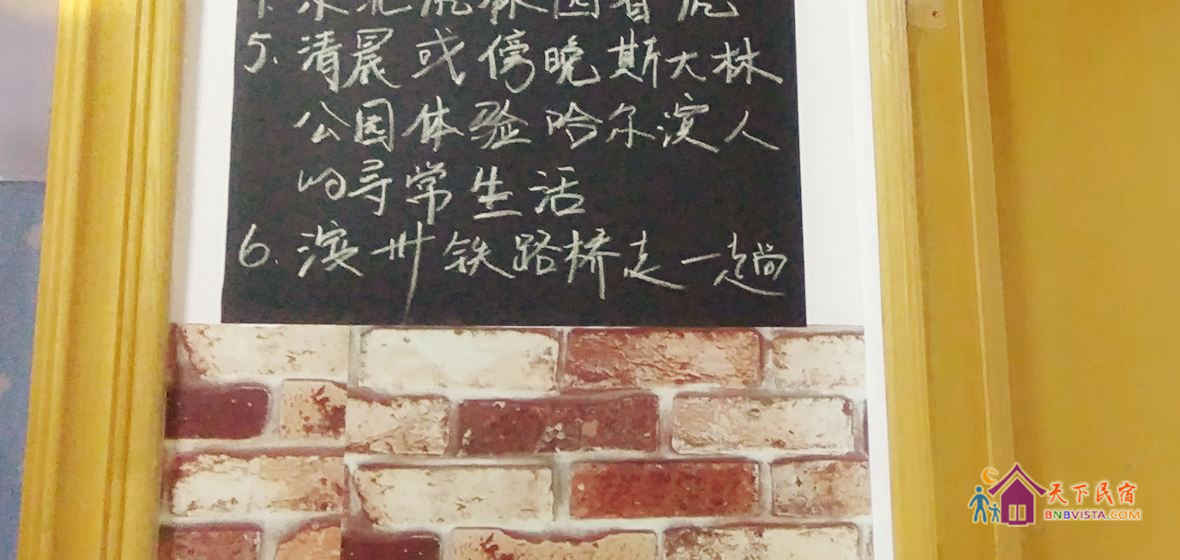 东北虎林园看虎
5. 清晨或傍晚斯大林
公园体验哈尔滨人
的寻常生活
6. 滨州铁路桥走一趟
天下民宿
BNBVISTA.COM